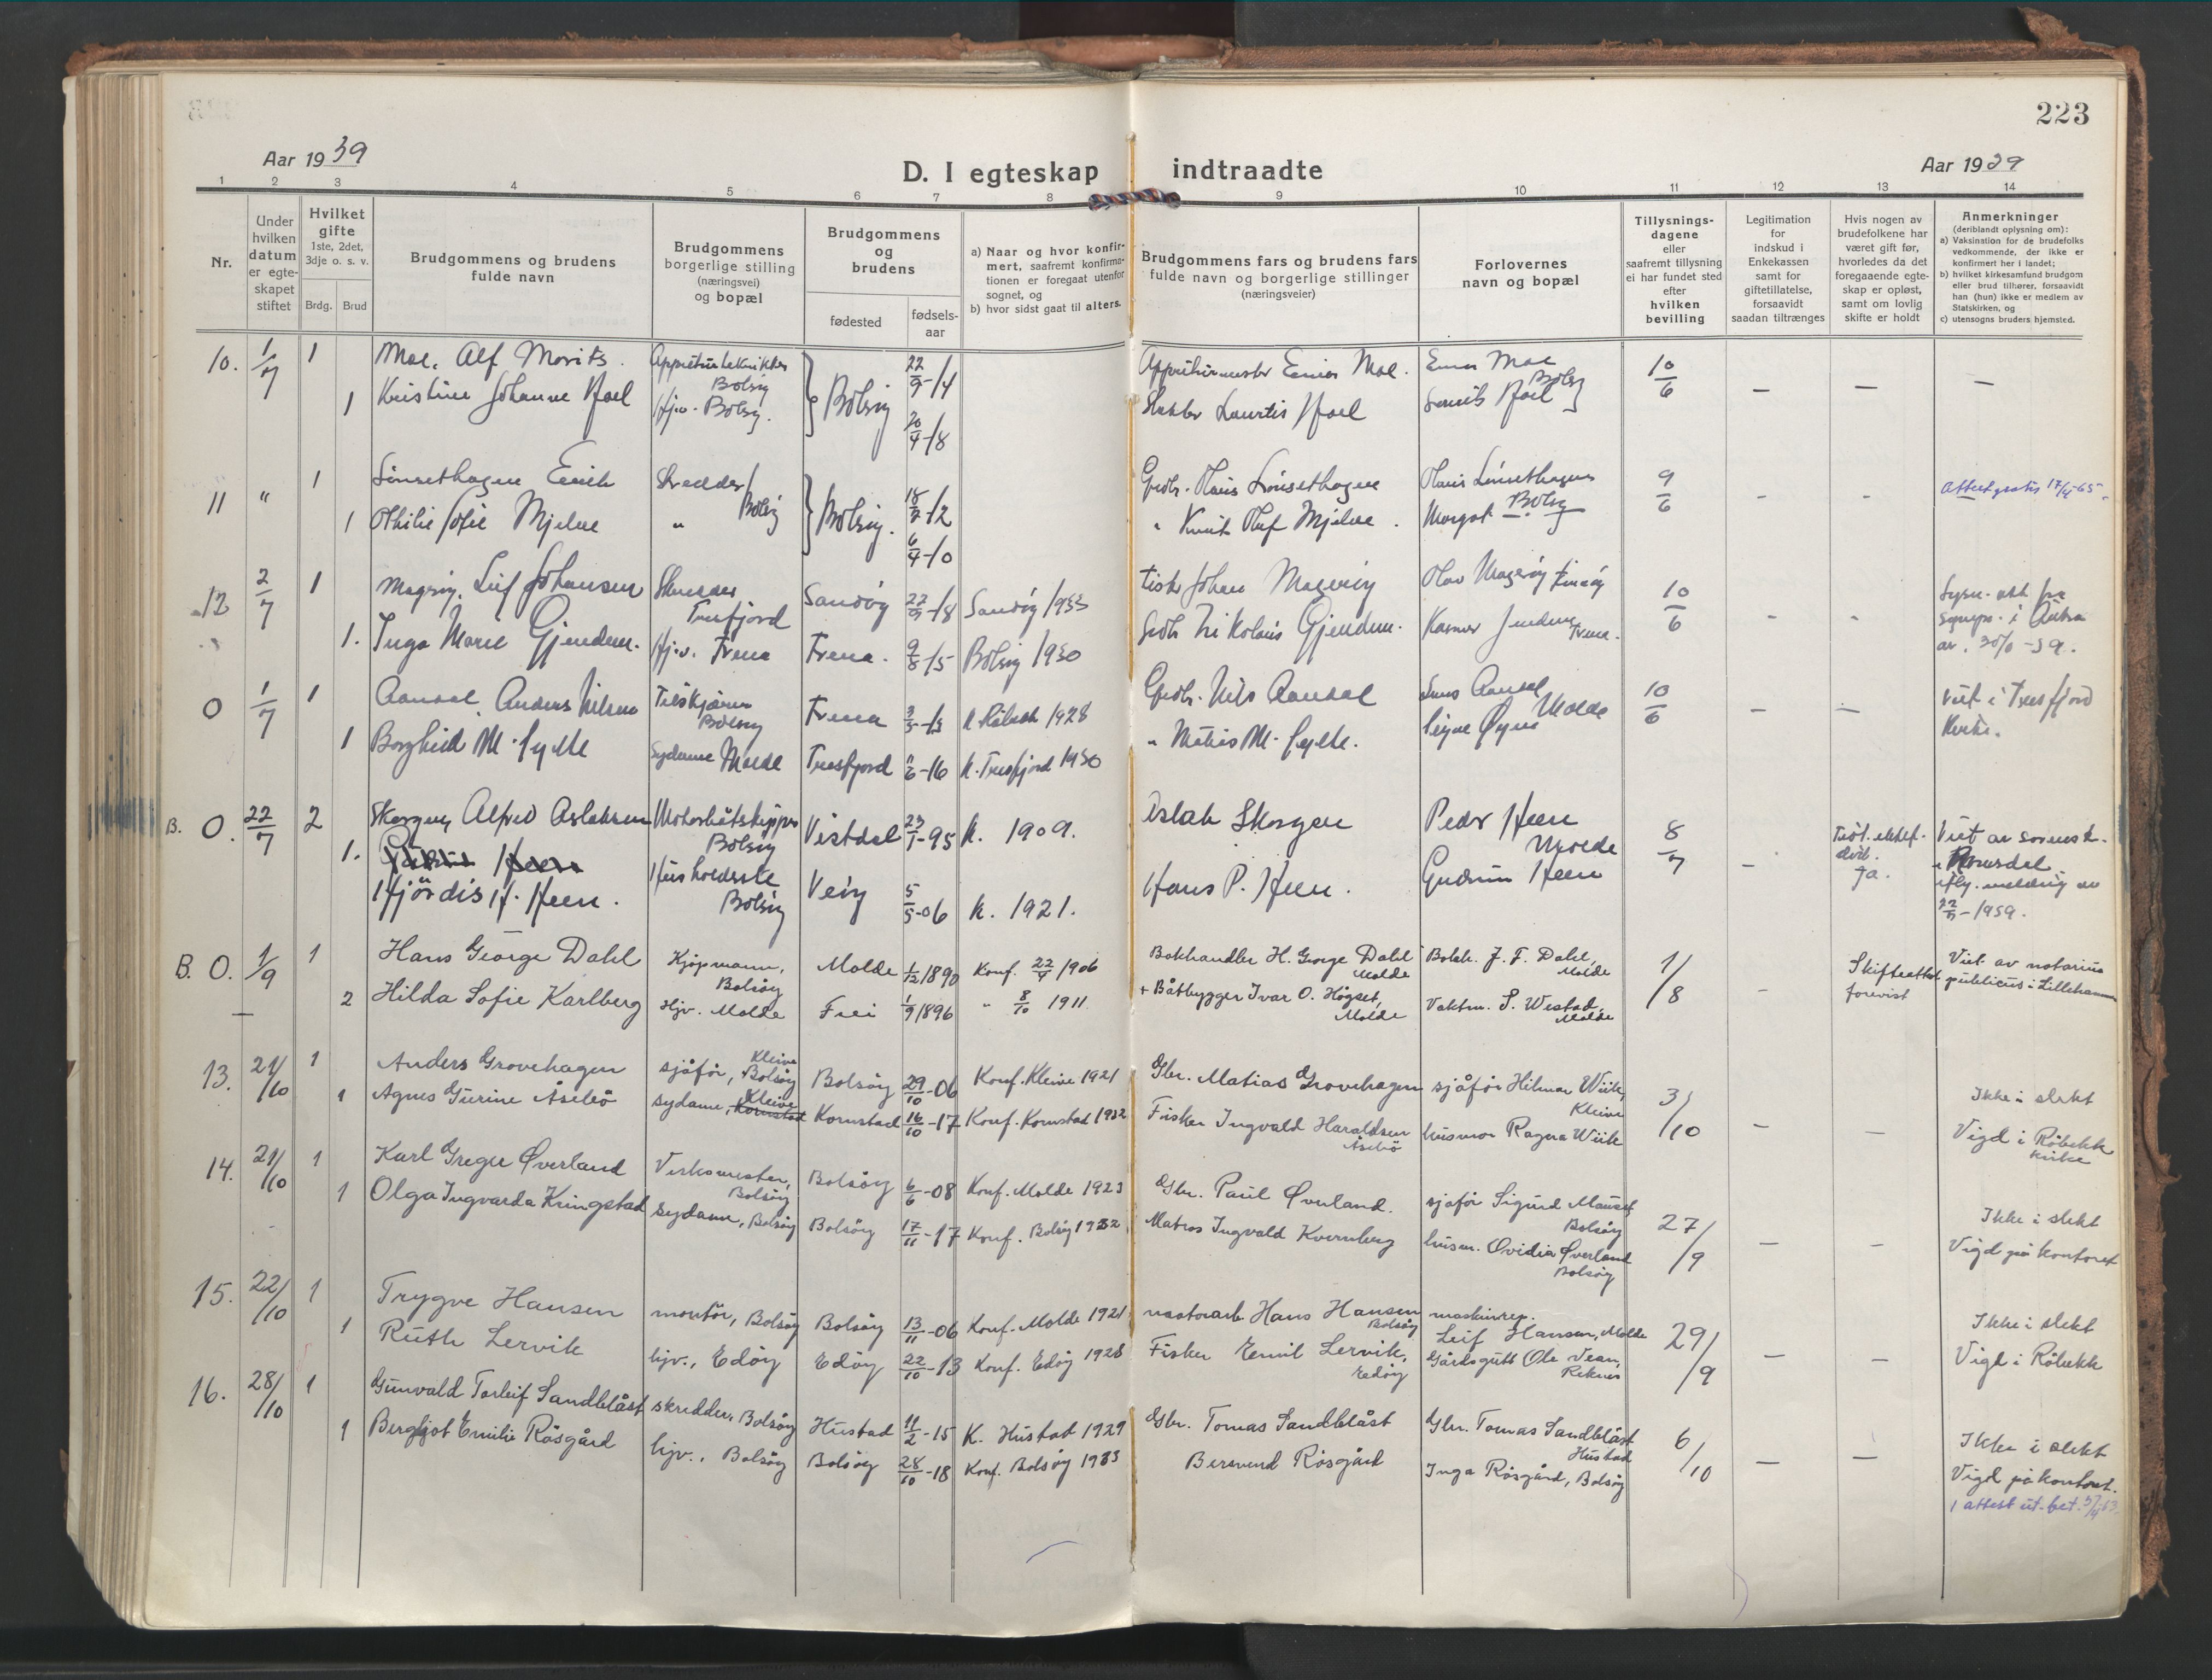 223
Aar 1939
D. I egteskap indtraadte
Aar 1939
1 2 3 4 5 6 7 8 9 10 11 12 13 14
Nr.
Under hvilken datum er egte-skapet stiftet
Hvilket gifte
1ste, 2det, 3dje o. s. v.
Brdg. Brud
Brudgommens og brudens fulde navn
Brudgommens borgerlige stilling (næringsvei) og bopæl
Brudgommens og brudens
fødested
fødsels-aar
a) Naar og hvor konfir-mert, saafremt konfirma-tionen er foregaat utenfor sognet, og
b) hvor sidst gaat til alters.
Brudgommens fars og brudens fars fulde navn og borgerlige stillinger (næringsveier)
Forlovernes navn og bopæl
Tillysnings-dagene eller saafremt tillysning ei har fundet sted efter hvilken bevilling
Legitimation for indskud i Enkekassen samt for giftetillatelse, forsaavidt saadan tiltrænges
Hvis nogen av brudefolkene har været gift før, hvorledes da det foregaaende egte-skap er opløst, samt om lovlig skifte er holdt
Anmerkninger (deriblandt oplysning om):
a) Vaksination for de brudefolks vedkommende, der ikke er konfirmert her i landet;
b) hvilket kirkesamfund brudgom eller brud tilhører, forsaavidt han (hun) ikke er medlem av Statskirken, og
c) utensogns bruders hjemsted.
10. 1/7 1 Moe, Alf Morits. Bolsøy 22/9-14 Einar Moe. Einar Moe 10/6 — — —
1 Kristine Johanne Hoel Hjv. Bolsøy. Bolsøy 20/4-18 Laurits Hoel Hoel Bolsøy
11 " 1 Lönsethagen Skredder Bolsøy 18/7-12 Grdbr. Hans Lönsethagen Hans Lönsethagen 9/6 - - Attest gratis
1 Othilie Sofie Mjelve " Bolsøy. 6/4-10 " Knut Olaf Mjelve. Margot Bolsøy
12 2/7 1 Magerøy, Leif Johansen Tresfjord Sandøy 22/9-18 Sandøy 1933 Johan Magerøy Olav Magerøy 10/6 - -
1. Inga Marie Gjendem. Hjv. Fræna Fræna. 9/8-15 Bolsøy 1930 Grdbr Nikolais Gjendem. Fræna.
0 1/7 1 Aandal, Anders Nilsen Bolsøy Fræna K. Röbekk 1928 Grdbr. Nils Aandal Aandal Molde 10/6 — — Viet i Tresfjord
1 Borghild M. Sylte Sydame Molde Tresfjord -16 K. Tresfjord 1930 " Matias M. Sylte. Signe Kirke.
B. 0. 22/7 2 Skorgen, Alfred Aslaksen Motorbåtskipper Bolsøy Vistdal 23/1-95 K. 1909. Aslak Skorgen Peder Heen Molde 8/7 —
1. Heen
Hjördis H. Heen. Bolsøy Veøy 5/5-06 K. 1921. Hans P. Heen. Gudrun Heen Ja. Romsdal 1939.
B. 0. 1/9 1 Hans George Dahl Kjøpmann, Bolsøy Molde 1/12 1890 Konf. 22/4 1906 Bokhandler H. George Dahl Molde Bokh. J. F. Dahl, Molde 1/8 - Skifteattest forevist Viet av notarius publicus i Lillehammer
2 Hilda Sofie Karlberg Hjv. Molde Frei 1/9 1896 " 8/10 1911 + Båtbygger Ivar O. Högset, Molde Vaktm. S. Westad, Molde
13. 21/10 1 Anders Grovehagen sjåför, Kleive Bolsøy Bolsøy 29/10-06 Konf. Kleive 1921 Gbr. Matias Grovehagen sjåför Hilmar Wiik, Kleive 3/10 — — Ikke i slekt
1 Agnes Gurine Åsebö sydame, Kleive Kornstad Kornstad 16/10-17 Konf. Kornstad 1932 Fisker Ingvald Haraldsen Åsebö husmor Ragna Wiik Vigd i Röbekk kirke
14. 21/10 1 Karl Greger Øverland Verksmester, Bolsøy Bolsøy 6/6-08 Konf. Molde 1923 Gbr. Paul Øverland. sjåför Sigurd Mauset Bolsøy 27/9 — — Ikke i slekt
1 Olga Ingvarda Kringstad sydame, Bolsøy Bolsøy 17/11-17 Konf. Bolsøy 1932 Matros Ingvald Kvernberg husm. Ovidia Øverland Bolsøy Vigd på kontoret
15. 22/10 1 Trygve Hansen montör, Bolsøy Bolsøy 13/11-06 Konf. Molde 1921 Hans Hansen Bolsøy maskinrep. Leif Hansen, Molde 29/9 — — Ikke i slekt
1 Ruth Lervik hjv., Edøy Edøy 22/10-13 Konf. Edøy 1928 Fisker Emil Lervik, Edøy Gårdsgutt Ole Vean, Reknes Vigd i Röbekk
16. 28/10 1 Gunvald Torleif Sandblåst skredder, Bolsøy Hustad 11/2-15 K. Hustad 1929 Gbr. Tomas Sandblåst Gbr. Tomas Sandblåst Hustad 6/10 — — Ikke i slekt
1 Bergljot Emilie Rösgård hjv., Bolsøy Bolsøy 28/10-18 Konf. Bolsøy 1933 Bersvend Rösgård Inga Rösgård, Bolsøy Vigd på kontoret.
1 attest ut.